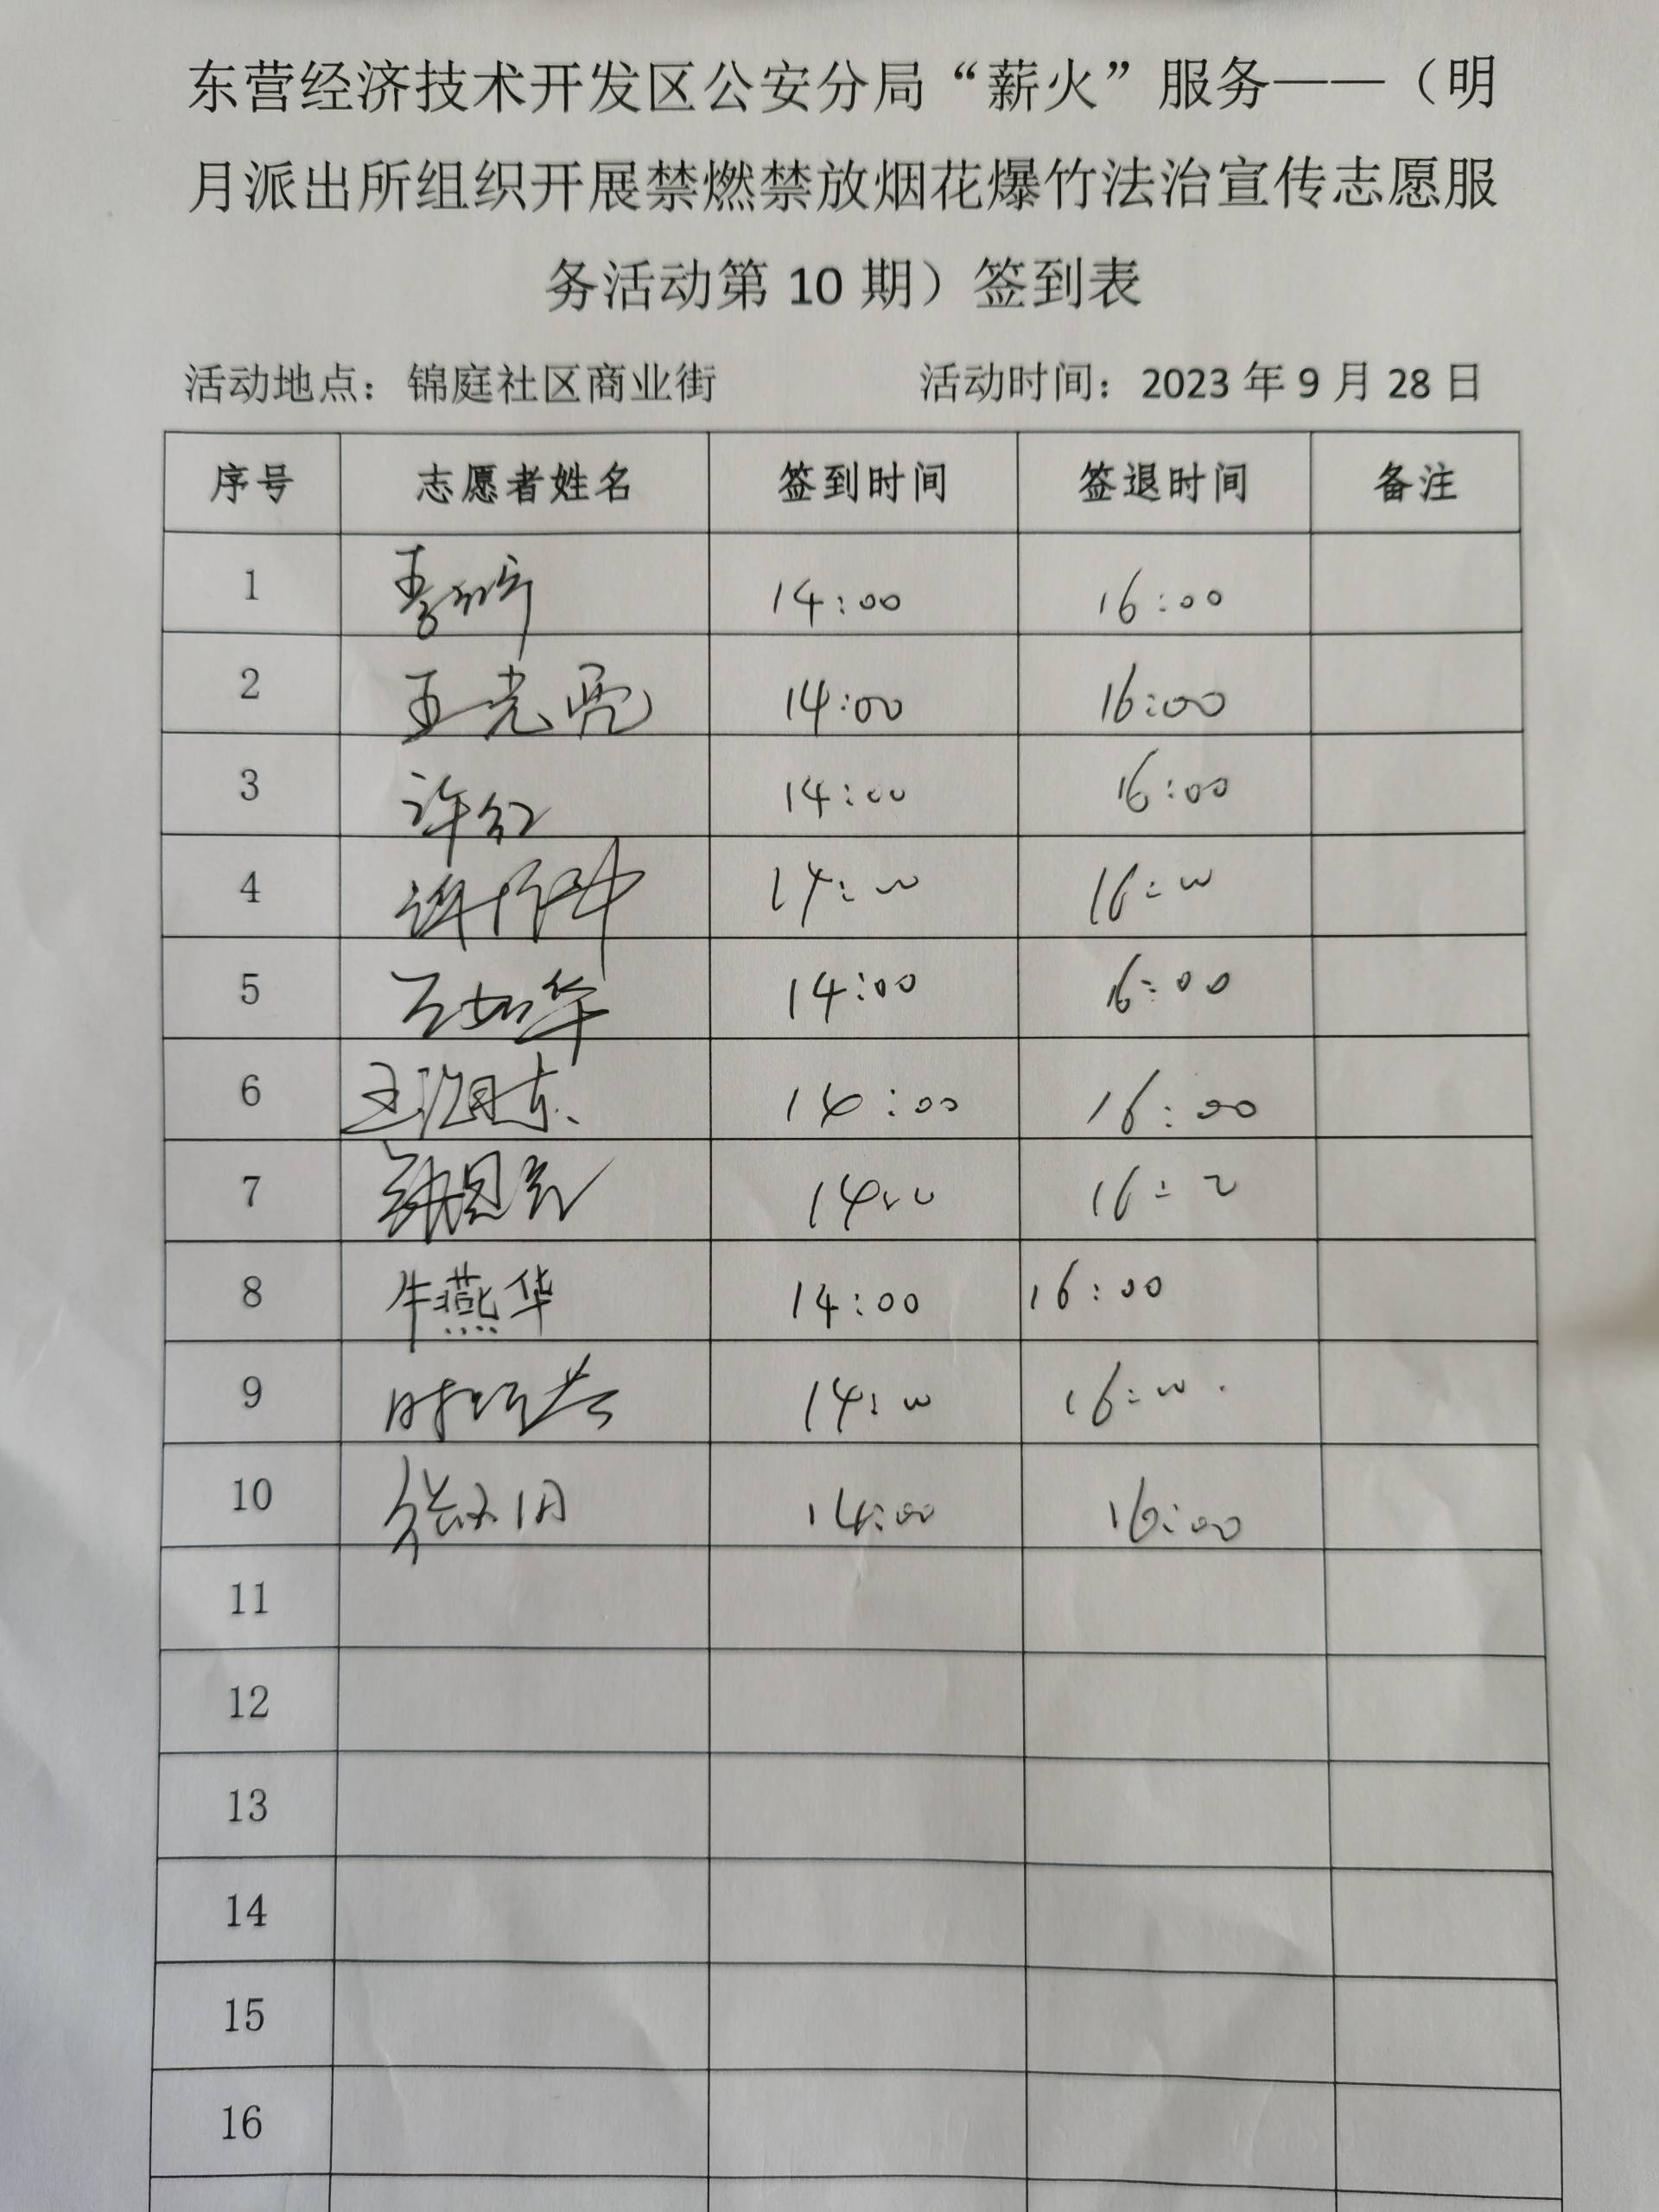 东营经济技术开发区公安分局“薪火”服务——（明
月派出所组织开展禁燃禁放烟花爆竹法治宣传志愿服
务活动第 10 期）签到表
活动地点：锦庭社区商业街 活动时间：2023 年 9 月 28 日
序号 志愿者姓名 签到时间 签退时间 备注
1 14:00 16:00
2 王光亮 14:00 16:00
3 许红 14:00 16:00
4 14:00 16:00
5 14:00 16:00
6 14:00 16:00
7 14:00 16:00
8 牛燕华 14:00 16:00
9 14:00 16:00
10 14:00 16:00
11
12
13
14
15
16